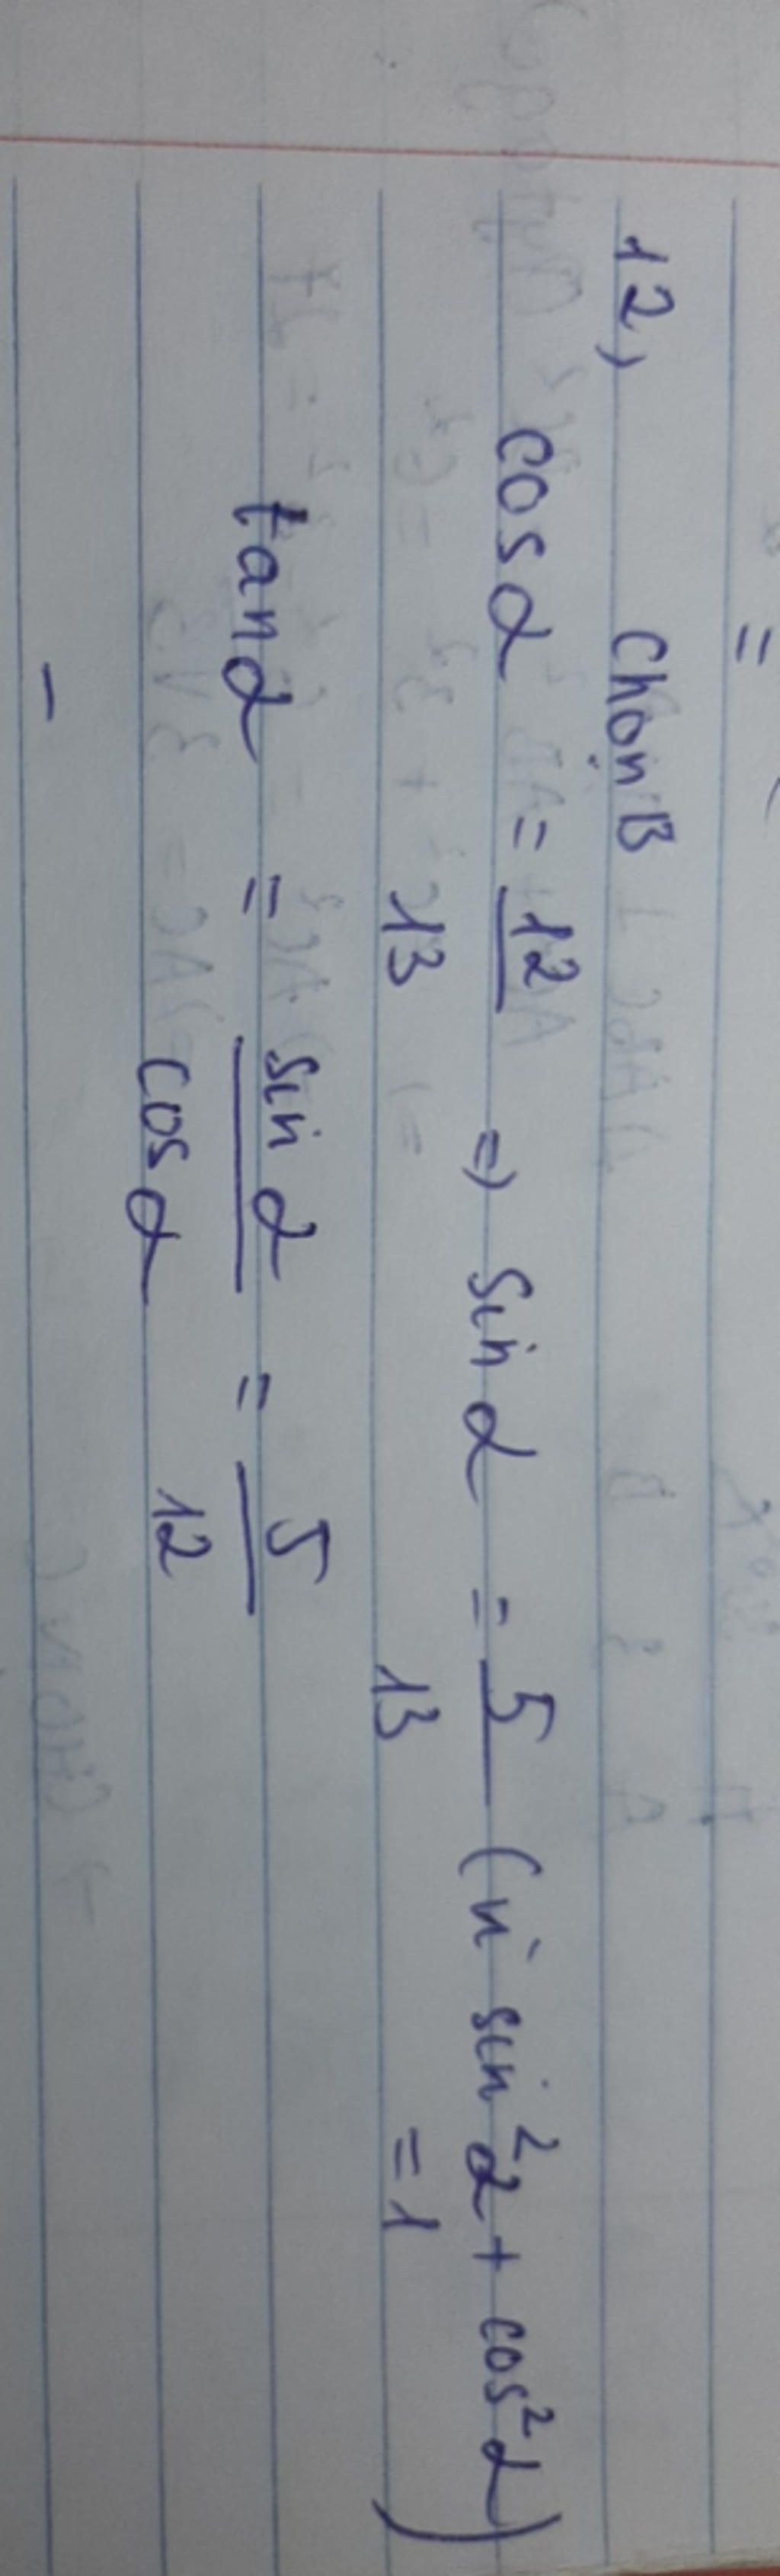 12, Chọn B
cosα = 12/13 => sin α = 5/13 (vì sin²α + cos²α = 1)
tanα = sin α/cos α = 5/12